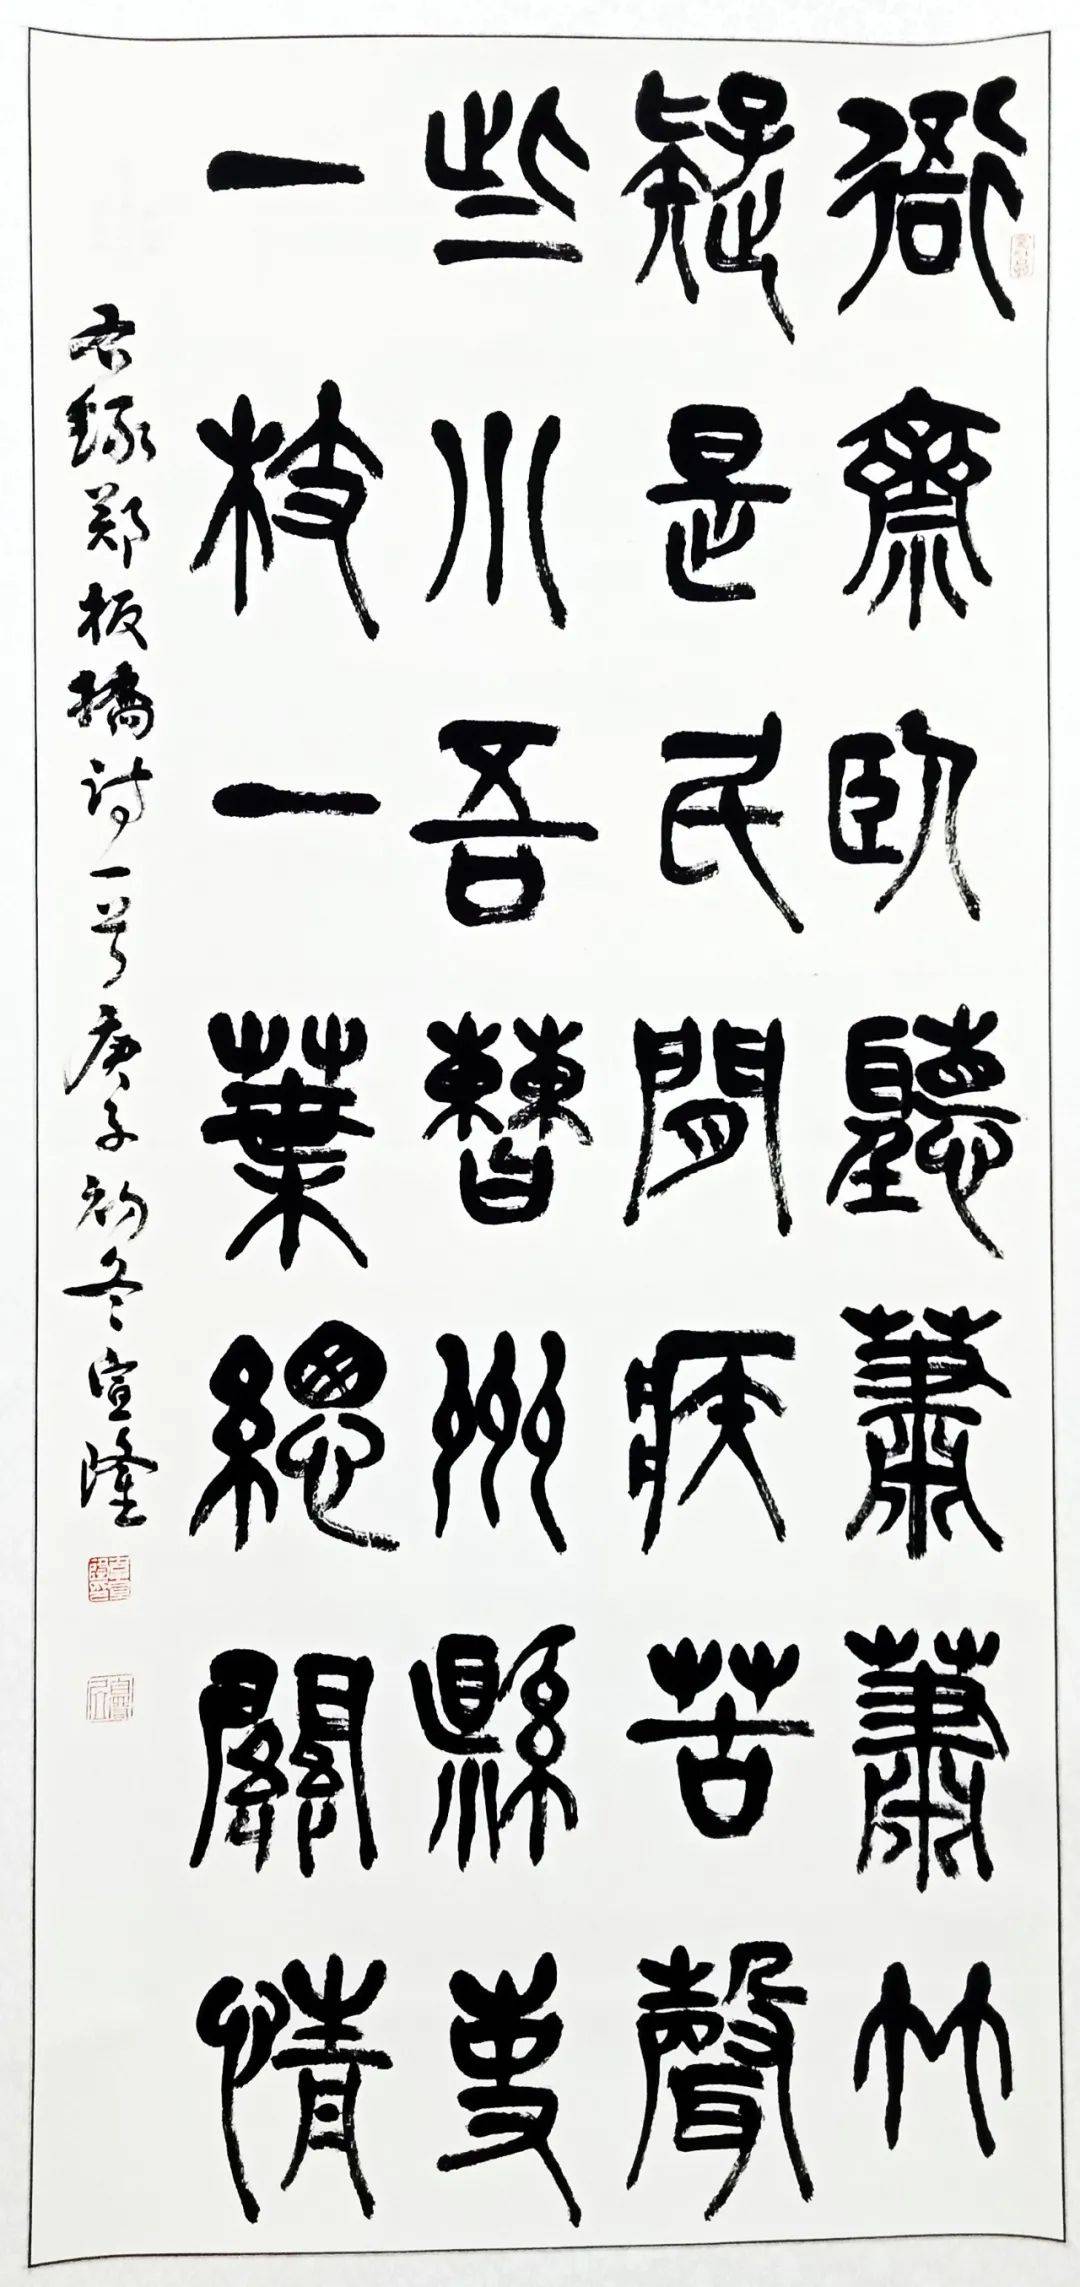 衙齋臥聽蕭蕭竹
疑是民間疾苦聲
些小吾曹州縣吏
一枝一葉總關情
右錄鄭板橋詩一首庚子初冬宣隆